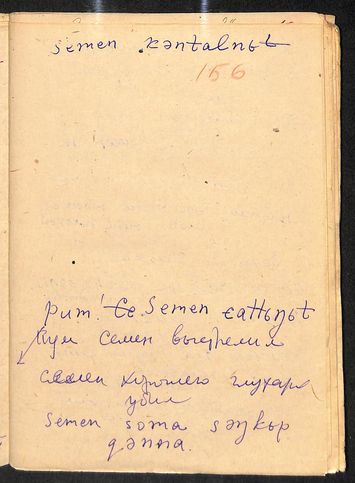 semen kəntalnьt
156
pum! C̶e̶. Semen cattьŋьt
бум Семен выстрелил
семен хорошего глухаря
убил
semen soma səŋkьp
qənna.